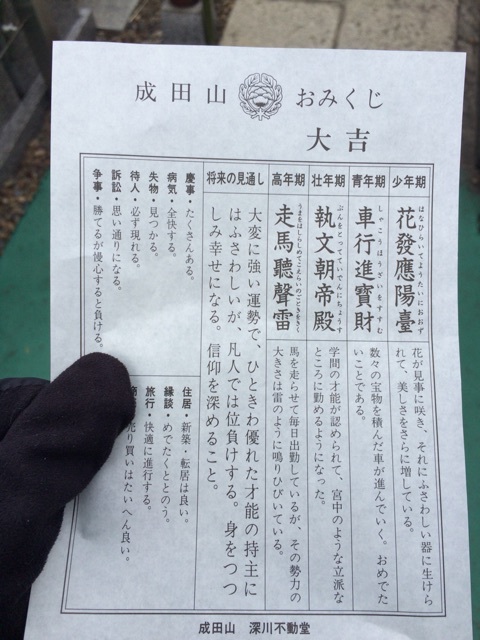 成田山 おみくじ
大吉
少年期
はなひらいてようたいにおおず
花發應陽臺
花が見事に咲き、それにふさわしい器に生けら
れて、美しさをさらに増している。
青年期
しゃこうほうざいをすすむ
車行進寶財
数々の宝物を積んだ車が進んでいく。おめでた
いことである。
壮年期
ぶんをとってていでんにちょうす
執文朝帝殿
学問の才能が認められて、宮中のような立派な
ところに勤めるようになった。
高年期
うまをはしらしめてこえらいのごときをきく
走馬聽聲雷
馬を走らせて毎日出勤しているが、その勢力の
大きさは雷のように鳴りひびいている。
将来の見通し
大変に強い運勢で、ひときわ優れた才能の持主に
はふさわしいが、凡人では位負けする。身をつつ
しみ幸せになる。信仰を深めること。
慶事・たくさんある。
病気・全快する。
失物・見つかる。
待人・必ず現れる。
訴訟・思い通りになる。
争事・勝てるが慢心すると負ける。
住居・新築・転居は良い。
縁談・めでたくととのう。
旅行・快適に進行する。
売り買いはたいへん良い。
成田山 深川不動堂